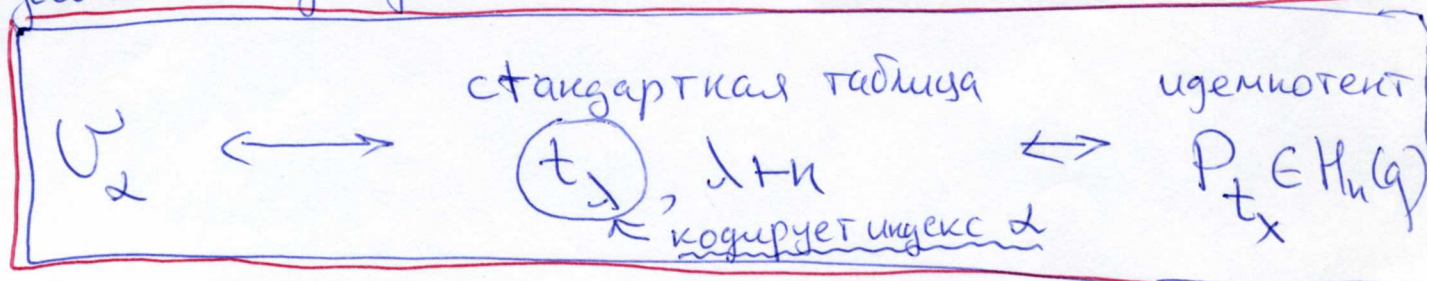 стандартная таблица идемпотент
υ_α ⟷ t_λ, λ⊢n ⟷ P_{t_λ} ∈ H_n(q)
кодирует индекс α